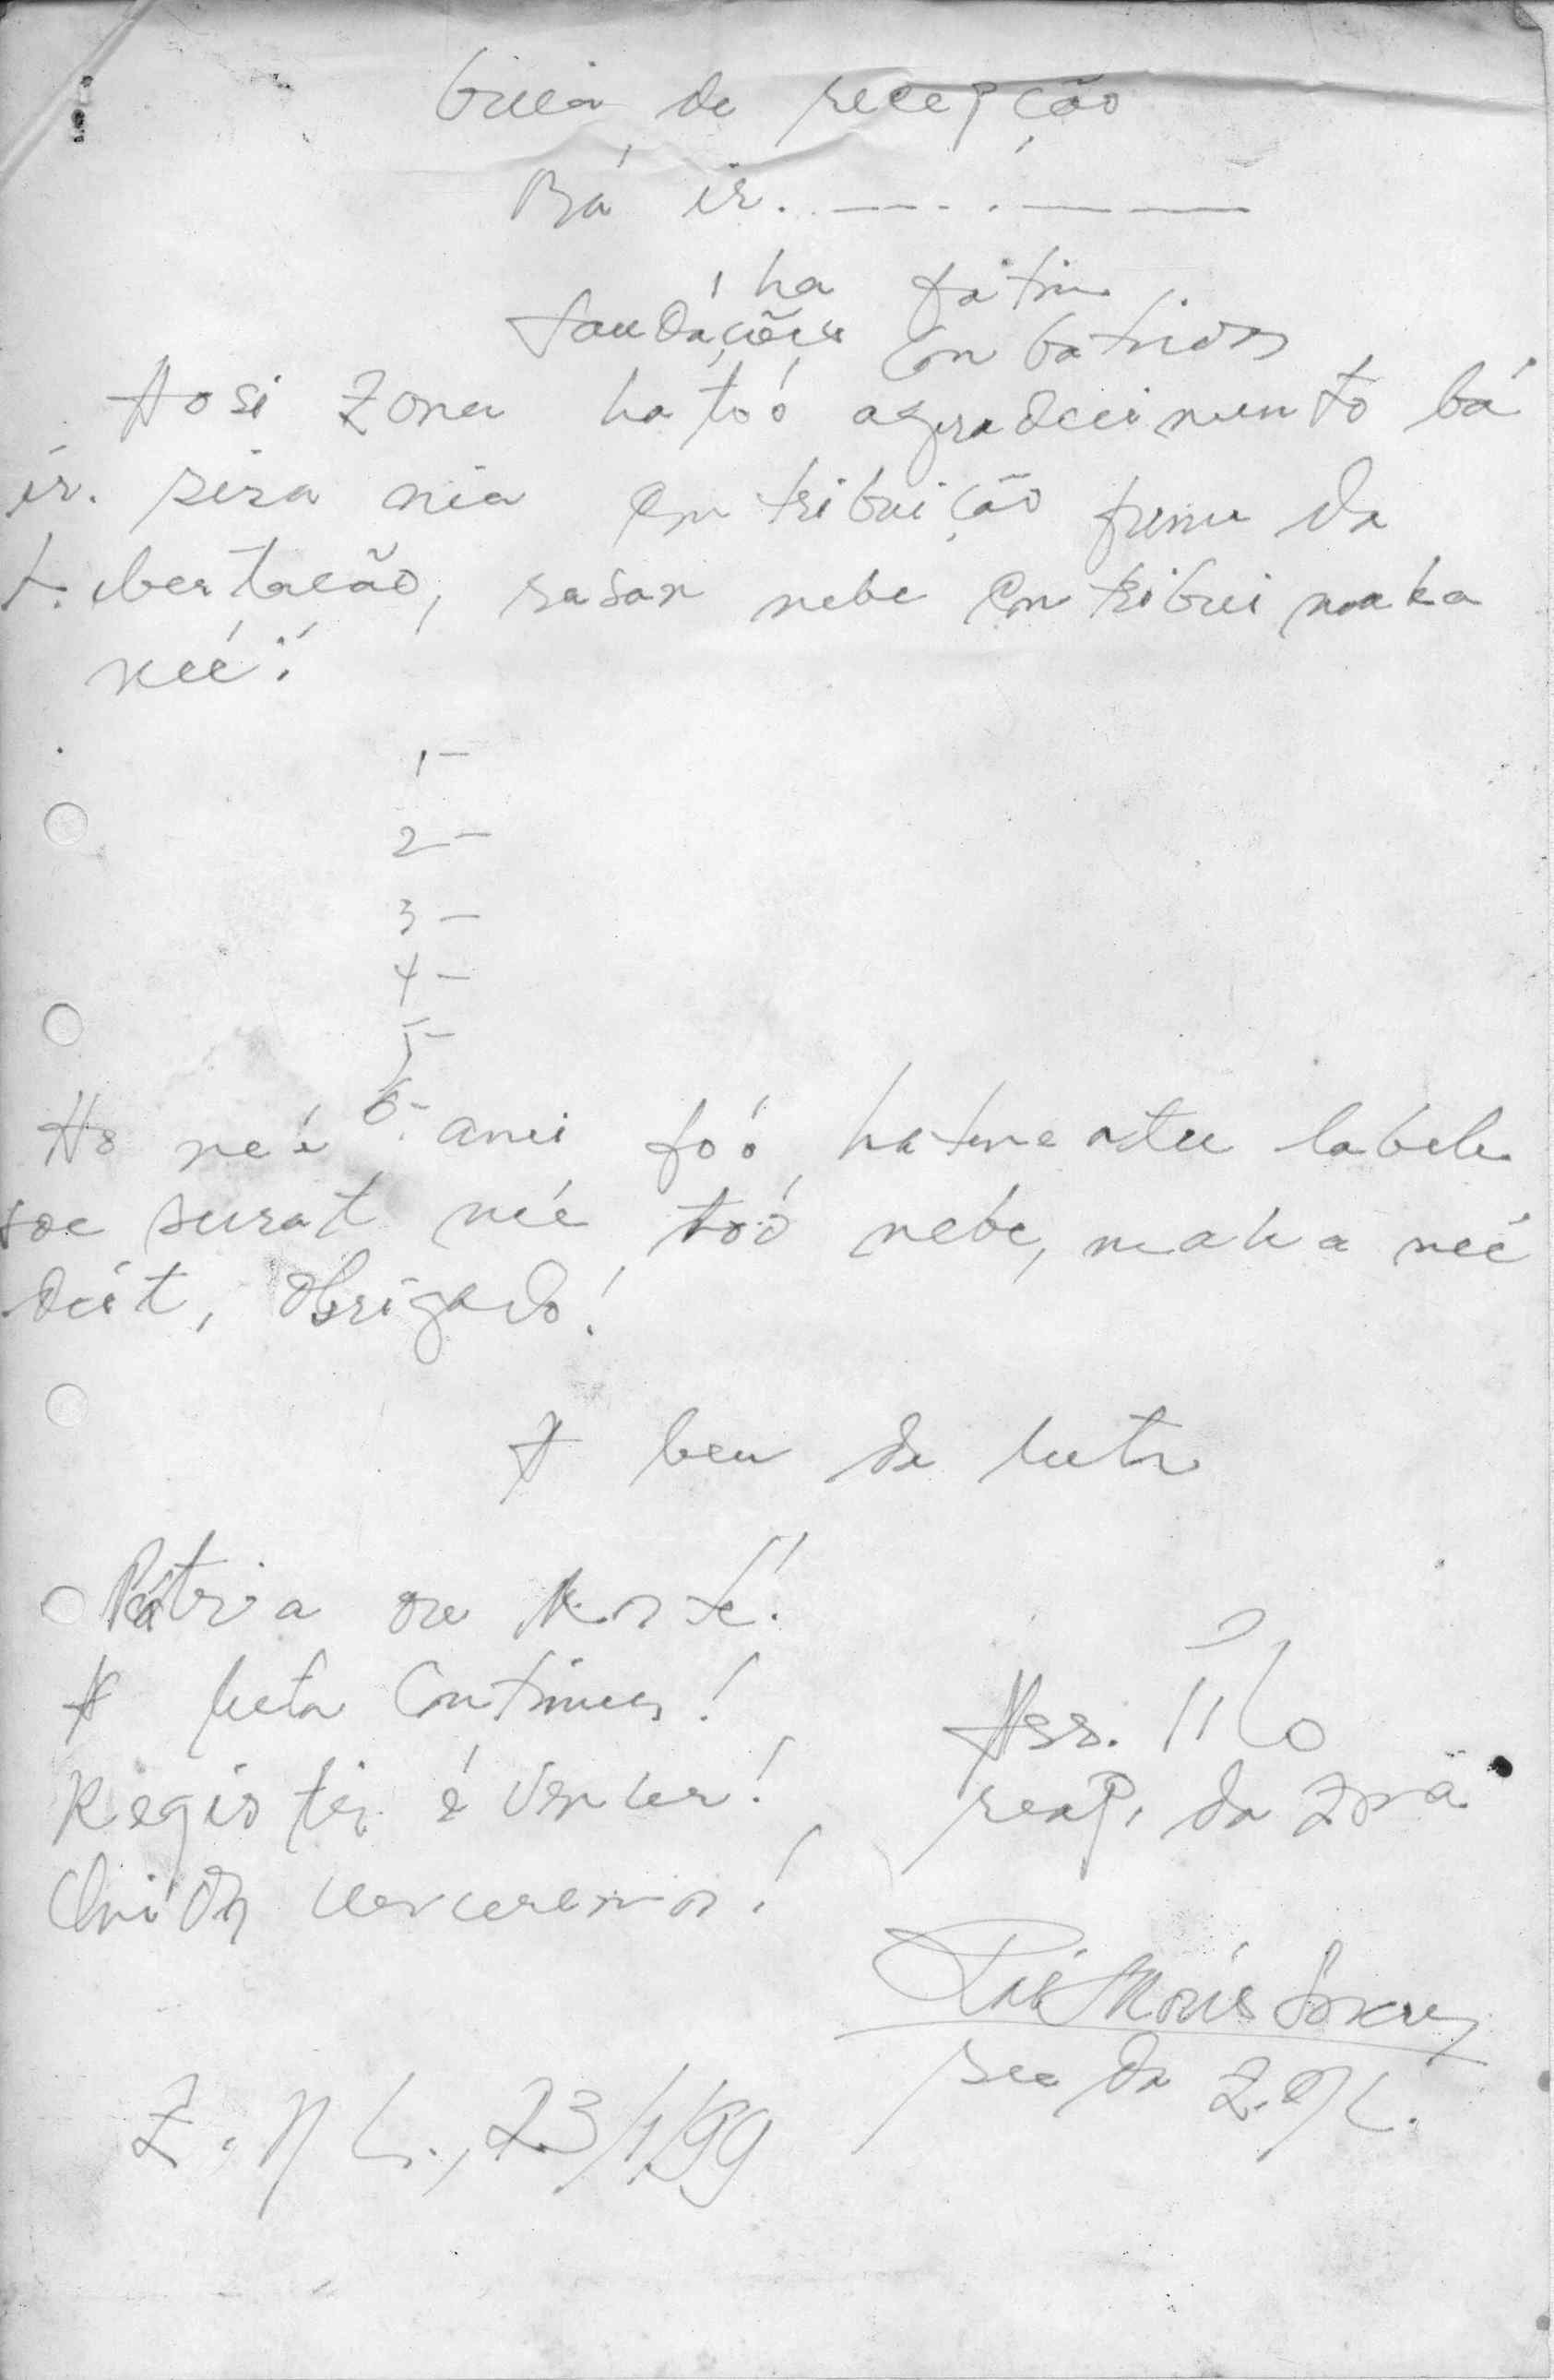 Guia de recepção
Bá ir. — - . — —
ha fatin
Saudações Conbatidas
Hosi Zona ható'o agradecimento bá
ir. sira nia Contribuição frente da
Libertação, sasan nebe Contribui maka
neé:
1-
2-
3-
4-
5-
6-
Ho neé ami fó'ó hatene atu labele
soe surat neé tó'ó nebe, maka neé
deit, Obrigado!
A bem da luta
Pátria ou Morte!
A luta Continua!
Registir é Vencer!
Unidos venceremos!
Ass.
resp. da Zona
sec da Z.N.L.
Z.N L., 23/1/99